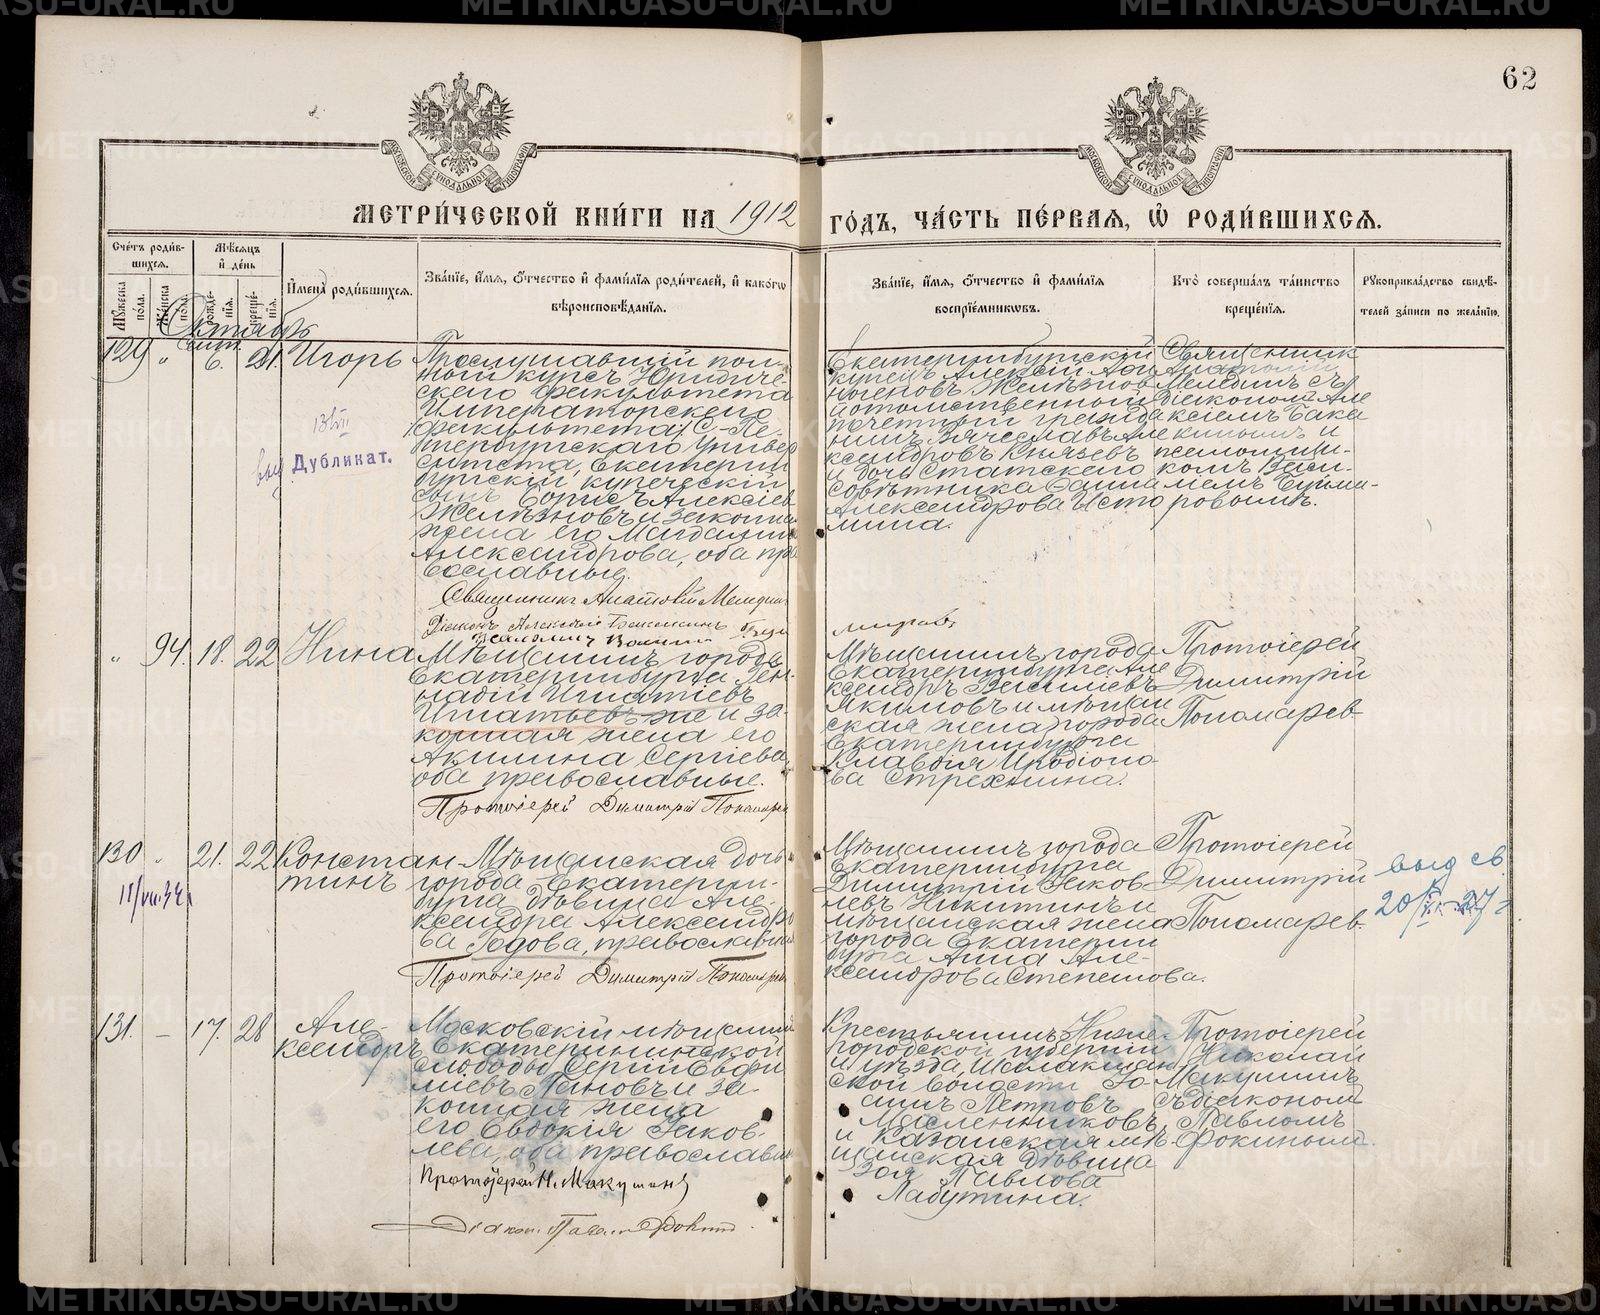 62
МЕТРИ́ЧЕСКОЙ КНИ́ГИ НА 1912 ГО́ДЪ, ЧА́СТЬ ПЕ́РВАЯ, Ѽ РОДИ́ВШИХСЯ.
Сче́тъ роди́вшихся.
Му́жеска по́ла.
Же́нска по́ла.
Мѣ́сяцъ и де́нь
рожде́нія.
креще́нія.
И́мена роди́вшихся.
Зва́ніе, и́мя, о́тчество и фами́лія роди́телей, и како́гѡ
вѣроисповѣ́данія.
Зва́ніе, и́мя, о́тчество и фами́лія
воспріе́мниковъ.
Кто̀ соверша́лъ та́инство
креще́нія.
Рукоприкла́дство свидѣ́-
телей за́писи по жела́нію.
Октябрь
129 " 6. 21. Игорь
Прослушавшій пол-
ный курсъ Юридиче-
скаго факультета
Императорскаго
С.-Пе-
тербургскаго Универ
ситета, Екатерин
бургскій купеческій
сынъ Борисъ Алексіев
Желѣзновъ и законна
жена его Магдалина
Александрова, оба пра
вославные.
Священникъ Анатолій
Діаконъ Алексій
Екатеринбургскій
купецъ Алексій
Желѣзновъ
и потомственный
почетный гражда
нинъ Вячеславъ Але
ксандровъ Князевъ
и дочь Статскаго
совѣтника
Александрова Исто
мина.
Священникъ
Анатолій
съ
діакономъ Але
ксіемъ Бака
и
псаломщи-
комъ Васи-
ліемъ
Дубликат.
" 94. 18. 22 Нина
Мѣщанинъ города
Екатеринбурга Ген-
надій Игнатіевъ
Игнатьевъ же и за-
конная жена его
Акилина Сергіева,
оба православные.
Протоіерей Димитрій Пономарев
Мѣщанинъ города
Екатеринбурга Але
ксандръ Василіевъ
Якимовъ и мѣщан
ская жена города
Екатеринбурга
Клавдія Иродіоно-
ва Стрехнина.
Протоіерей
Димитрій
Пономарев
130 " 21. 22 Констан-
тинъ
11/VIII.34 г
Мѣщанская дочь
города Екатерин-
бурга дѣвица Але-
ксандра Александро
ва Годова, православная
Протоіерей Димитрій Пономарев
Мѣщанинъ города
Екатеринбурга
Димитрій Яков-
левъ Никитинъ и
мѣщанская жена
города Екатерин
бурга Анна Але-
ксандрова Степанова.
Протоіерей
Димитрій
Пономарев
выд св.
131. — 17. 28 Але-
ксандръ
Московскій мѣщанин
Екатерининской
слободы Сергій Евфи
міевъ Пановъ и за-
конная жена
его Евдокія Яков-
лева, оба православн
Протоіерей Н. Макушинъ
Діакон. Павел Фокин
Крестьянинъ Ниже-
городской губерніи
и уѣзда,
ской волости
Петровъ
Масленниковъ,
и Казанская мѣ-
щанская дѣвица
Зоя Павлова
Лабутина.
Протоіерей
Николай
Макушинъ
съ діакономъ
Павломъ
Фокинымъ.